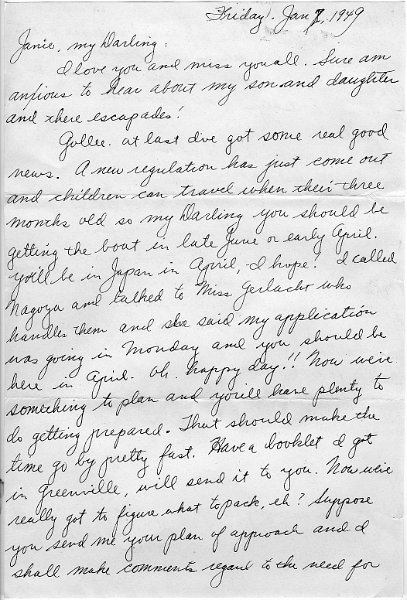 Friday. Jan 7, 1949
Janie, my Darling:
I love you and miss you all. Sure am
anxious to hear about my son and daughter
and there escapades!
Gollee. at last I've got some real good
news. A new regulation has just come out
and children can travel when their three
months old so my Darling you should be
getting the boat in late June or early April.
you'll be in Japan in April, I hope! I called
Nagoya and talked to Miss Gerlacho who
handles them and she said my application
was going in Monday and you should be
here in April. Oh. happy day!! Now we're
something to plan and you'll have plenty to
do getting prepared. That should make the
time go by pretty fast. Have a booklet I got
in Greenville, will send it to you. Now we've
really got to figure what to pack, eh? Suppose
you send me your plan of approach and I
shall make comments regard to the need for